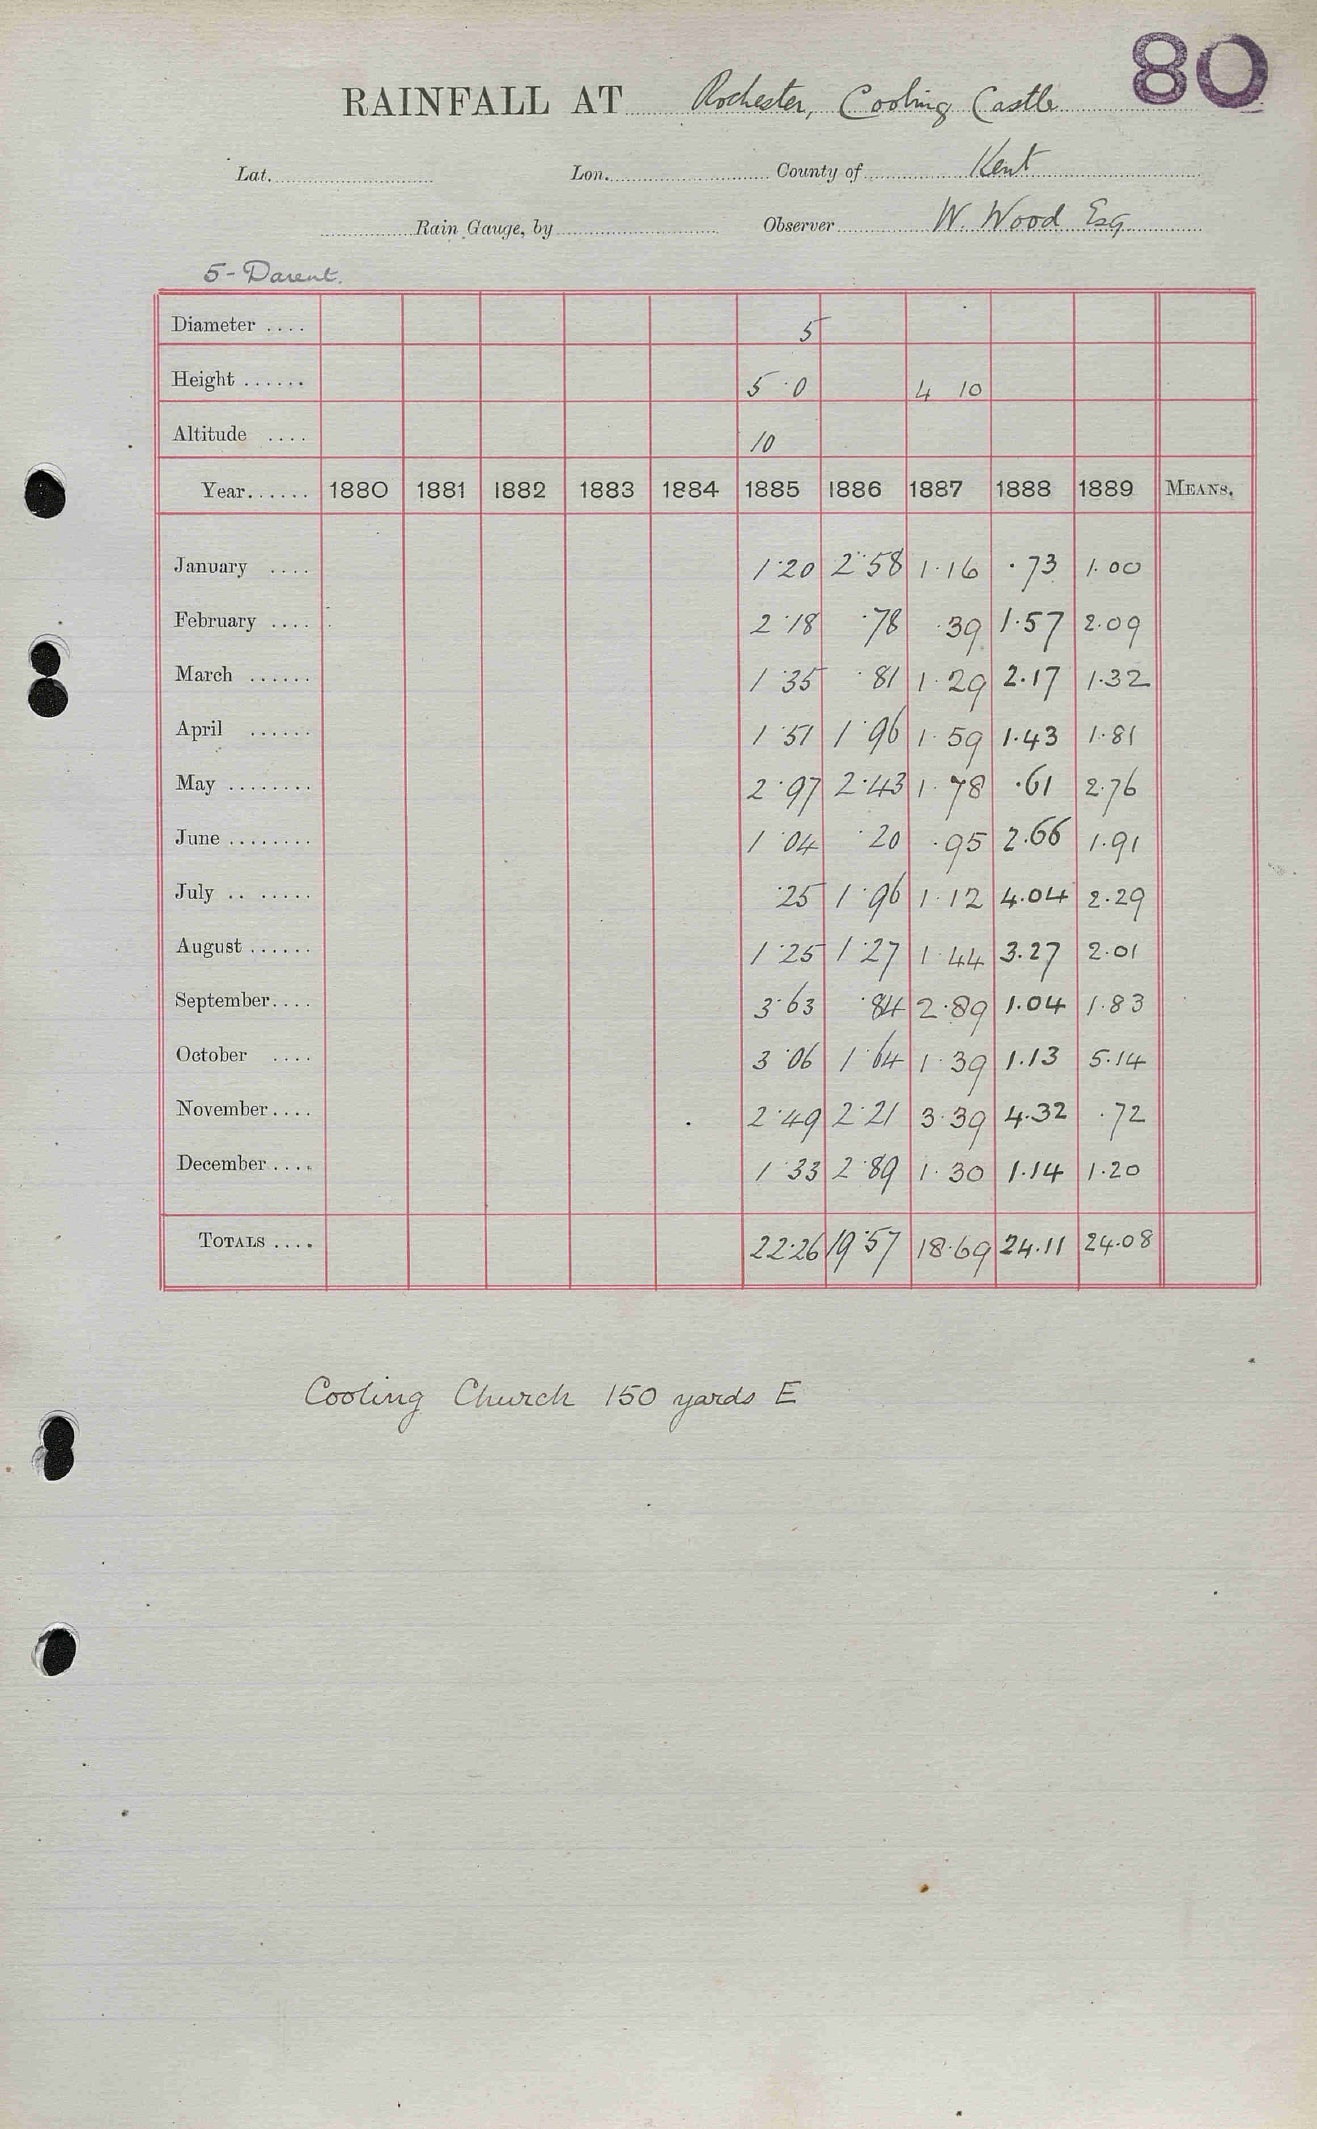 80
RAINFALL AT Rochester, Cooling Castle
Lat. Lon. County of Kent
Rain Gauge, by Observer W. Wood Esq
5-Darent.
Diameter .... 5
Height ...... 5 0 4 10
Altitude .... 10
Year...... 1880 1881 1882 1883 1884 1885 1886 1887 1888 1889 MEANS.
January .... 1.20 2.58 1.16 .73 1.00
February .... 2.18 .78 .39 1.57 2.09
March ...... 1.35 .81 1.29 2.17 1.32
April ...... 1.51 1.96 1.59 1.43 1.81
May ........ 2.97 2.43 1.78 .61 2.76
June ........ 1.04 .20 .95 2.66 1.91
July .. ...... .25 1.96 1.12 4.04 2.29
August ...... 1.25 1.27 1.44 3.27 2.01
September.... 3.63 .84 2.89 1.04 1.83
October .... 3.06 1.64 1.39 1.13 5.14
November.... 2.49 2.21 3.39 4.32 .72
December.... 1.33 2.89 1.30 1.14 1.20
TOTALS .... 22.26 19.57 18.69 24.11 24.08
Cooling Church 150 yards E